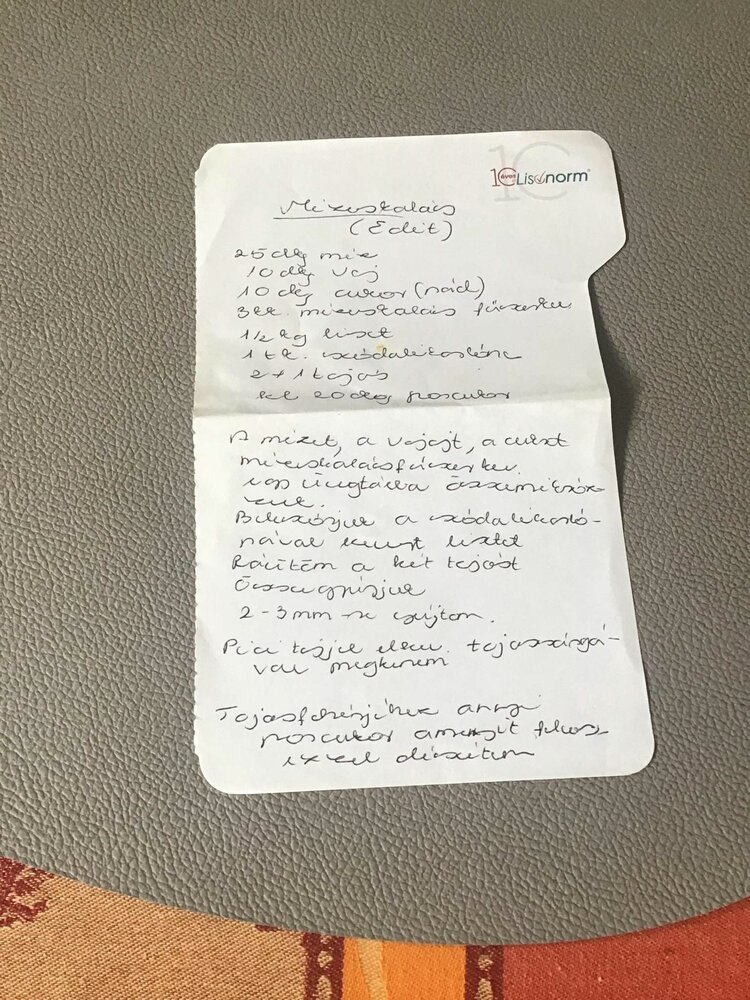 10 éves Lisonorm
Mézeskalács
(Edit)
25 dkg méz
10 dkg vaj
10 dkg cukor (nád)
3 kk. mézeskalács fűszerke.
1/2 kg liszt
1 tk. szódabikarbóna
2+1 tojás
kb 20 dkg porcukor
A mézet, a vajat, a cukrot
mézeskalácsfűszerker.
egy összemikróz-
zuk.
Beleszórjuk a szódabikarbó-
nával kevert lisztet
Ráütöm a két tojást
Összegyúrjuk
2-3 mm-re nyújtom.
Pici tejjel elkev. tojássárgá-
val megkenem
Tojásfehérjéhez annyi
porcukor amennyit felvesz
ezzel díszítem